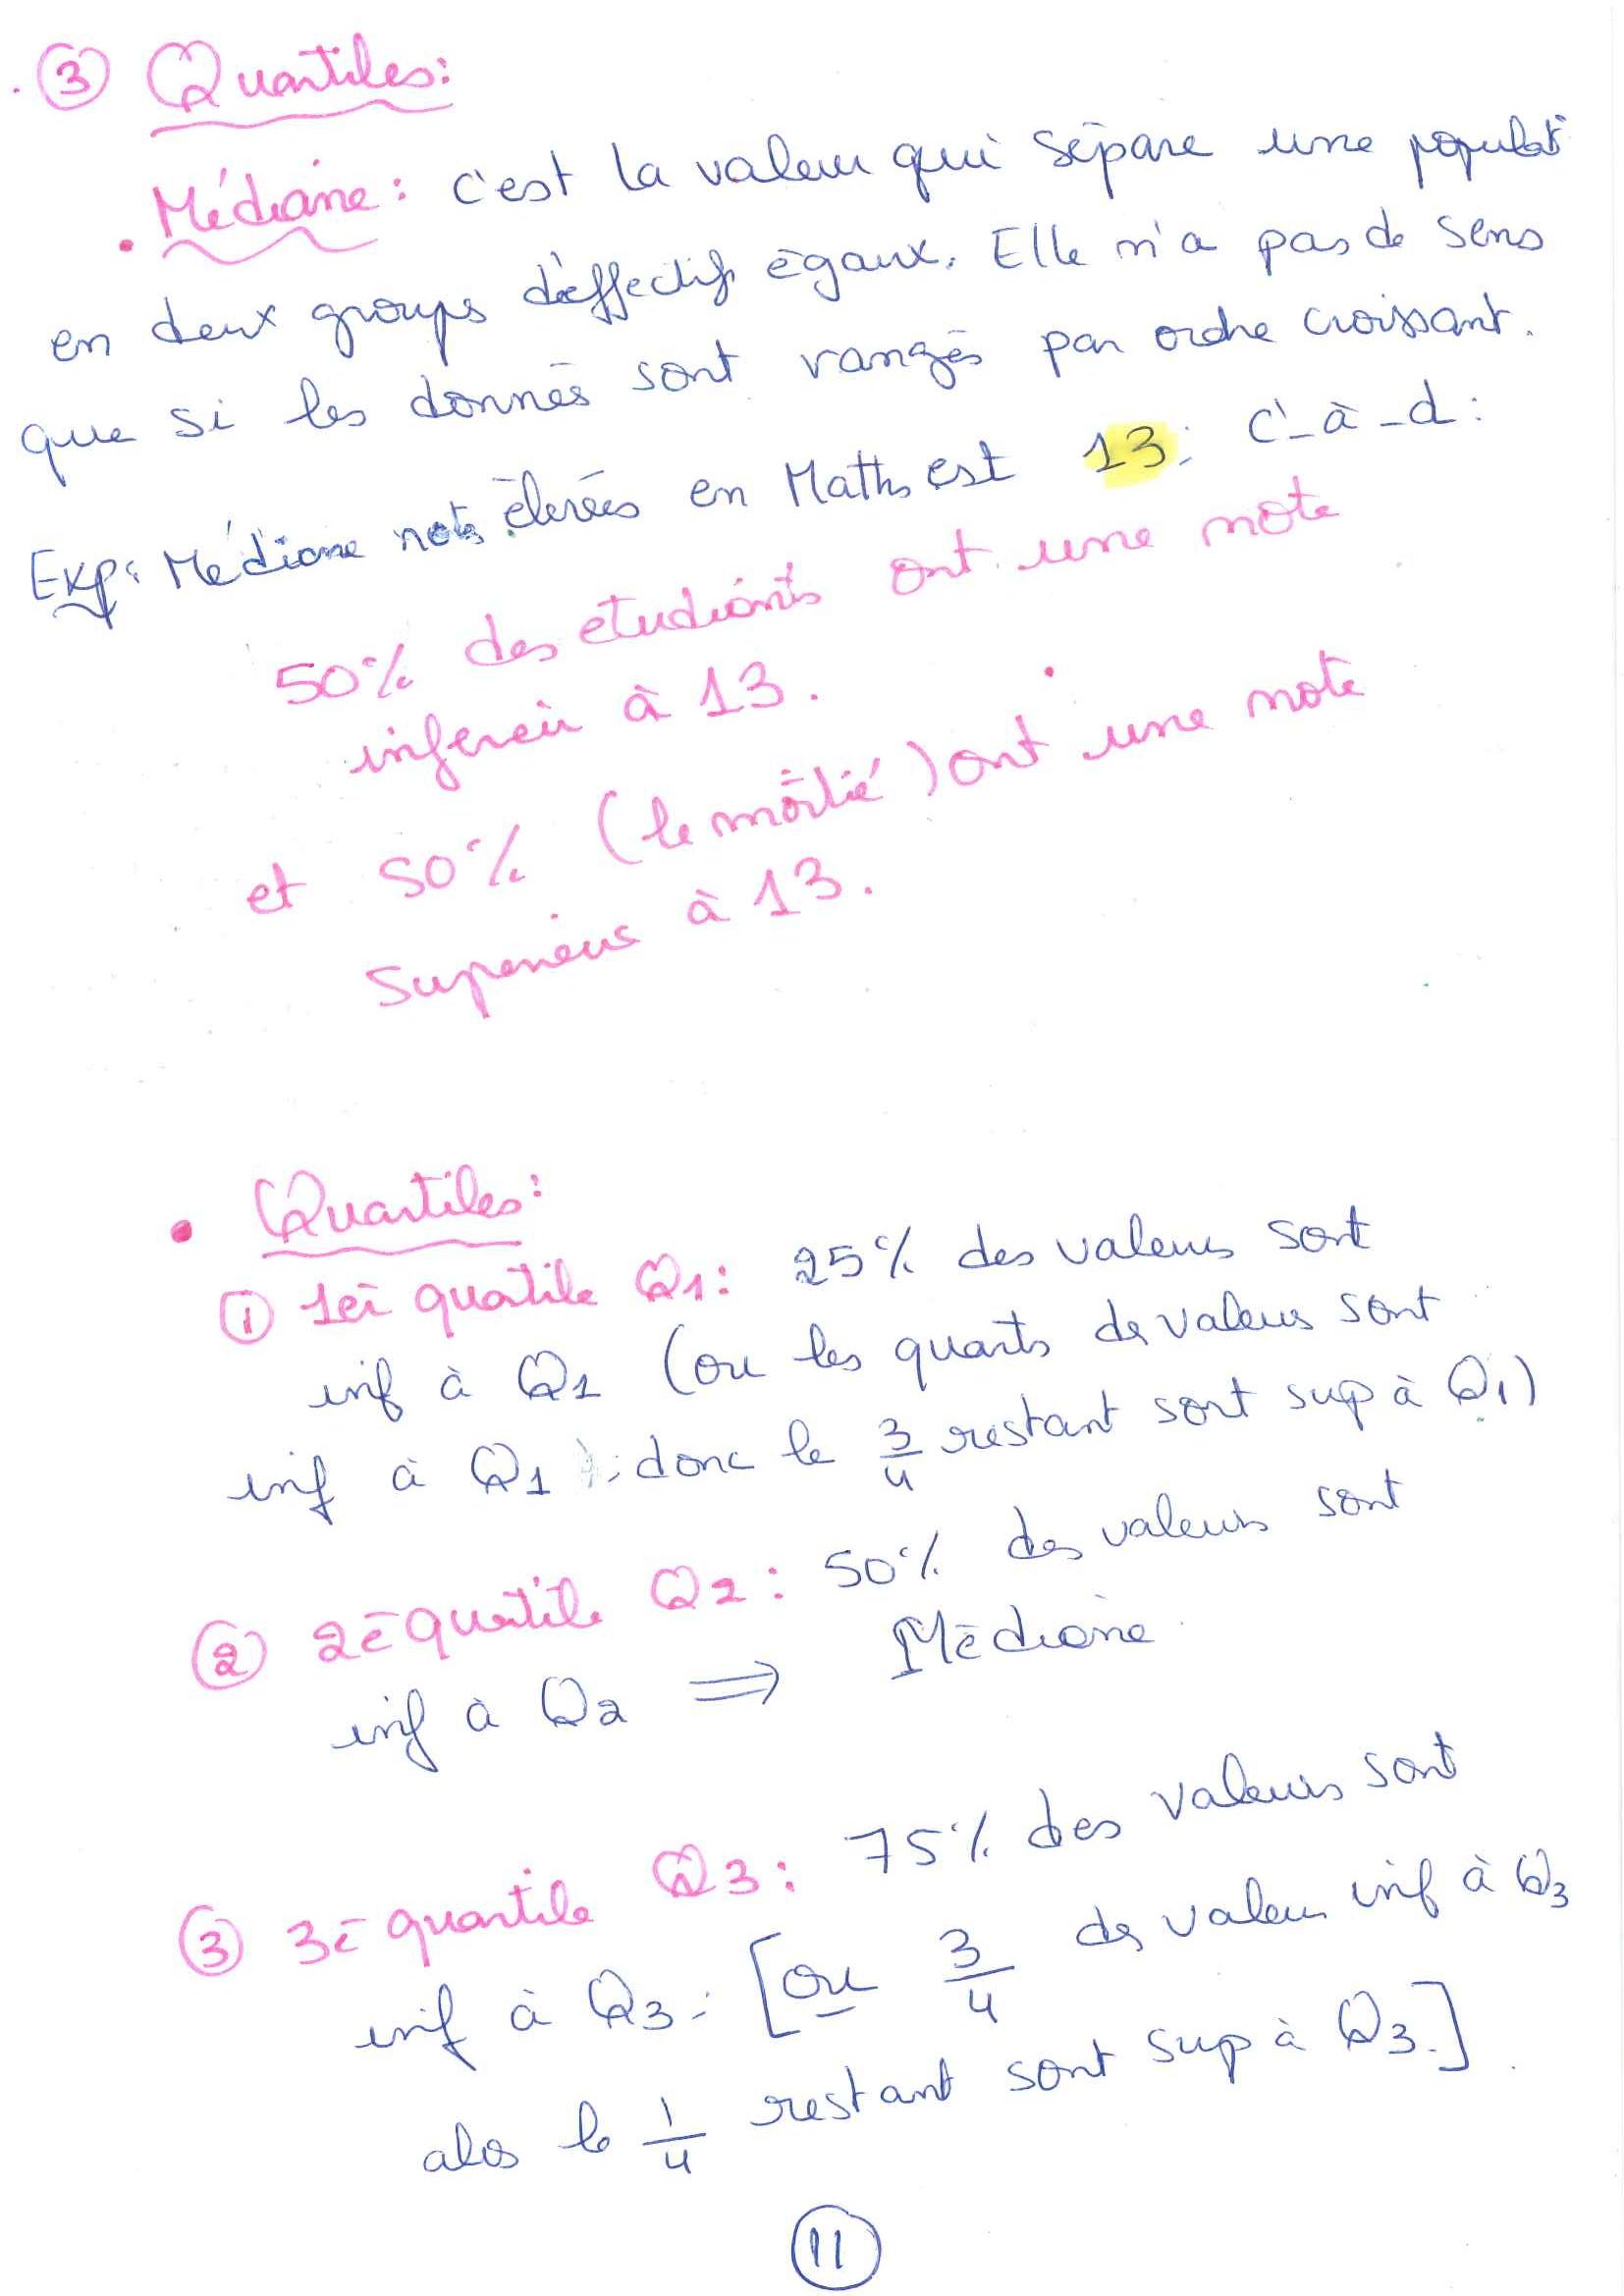 ③ Quantiles:
• Médiane: c'est la valeur qui sépare une populat°
en deux groups d'éffectifs égaux. Elle n'a pas de sens
que si les donnés sont rangés par ordre croissant.
Exp: Médiane nots élevées en Maths est 13; c'-à-d:
50% des étudiants ont une note
infereir à 13.
et 50% (le moitié) ont une note
superieus à 13.
• Quartiles:
① 1er quartile Q1: 25% des valeurs sont
inf à Q1 (ou les quarts de valeurs sont
inf à Q1); donc le 3/4 restant sont sup à Q1)
② 2è quartile Q2: 50% des valeurs sont
inf à Q2 ⇒ Médiane
③ 3è quartile Q3: 75% des valeurs sont
inf à Q3. [ou 3/4 de valeur inf à Q3
alos le 1/4 restant sont sup à Q3.]
11